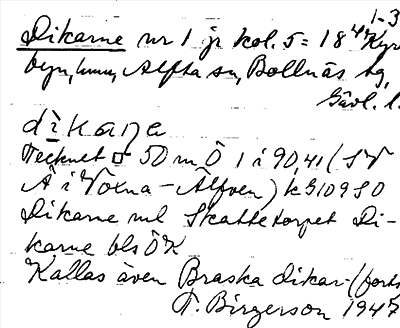 1-3
Dikarne nr 1 jr kol. 5 = 18
byn, Alfta sn, Bollnäs tg,
Gävl. l.
Tecknet □ 50 m Ö 1 i 9041 (SV
Å i Voxna-Älfven) k 5109 SO
Dikarne ml Skattetorpet Di-
karne bls ÖK
Kallas även Braska dikar- (forts
T. Birgerson 1947